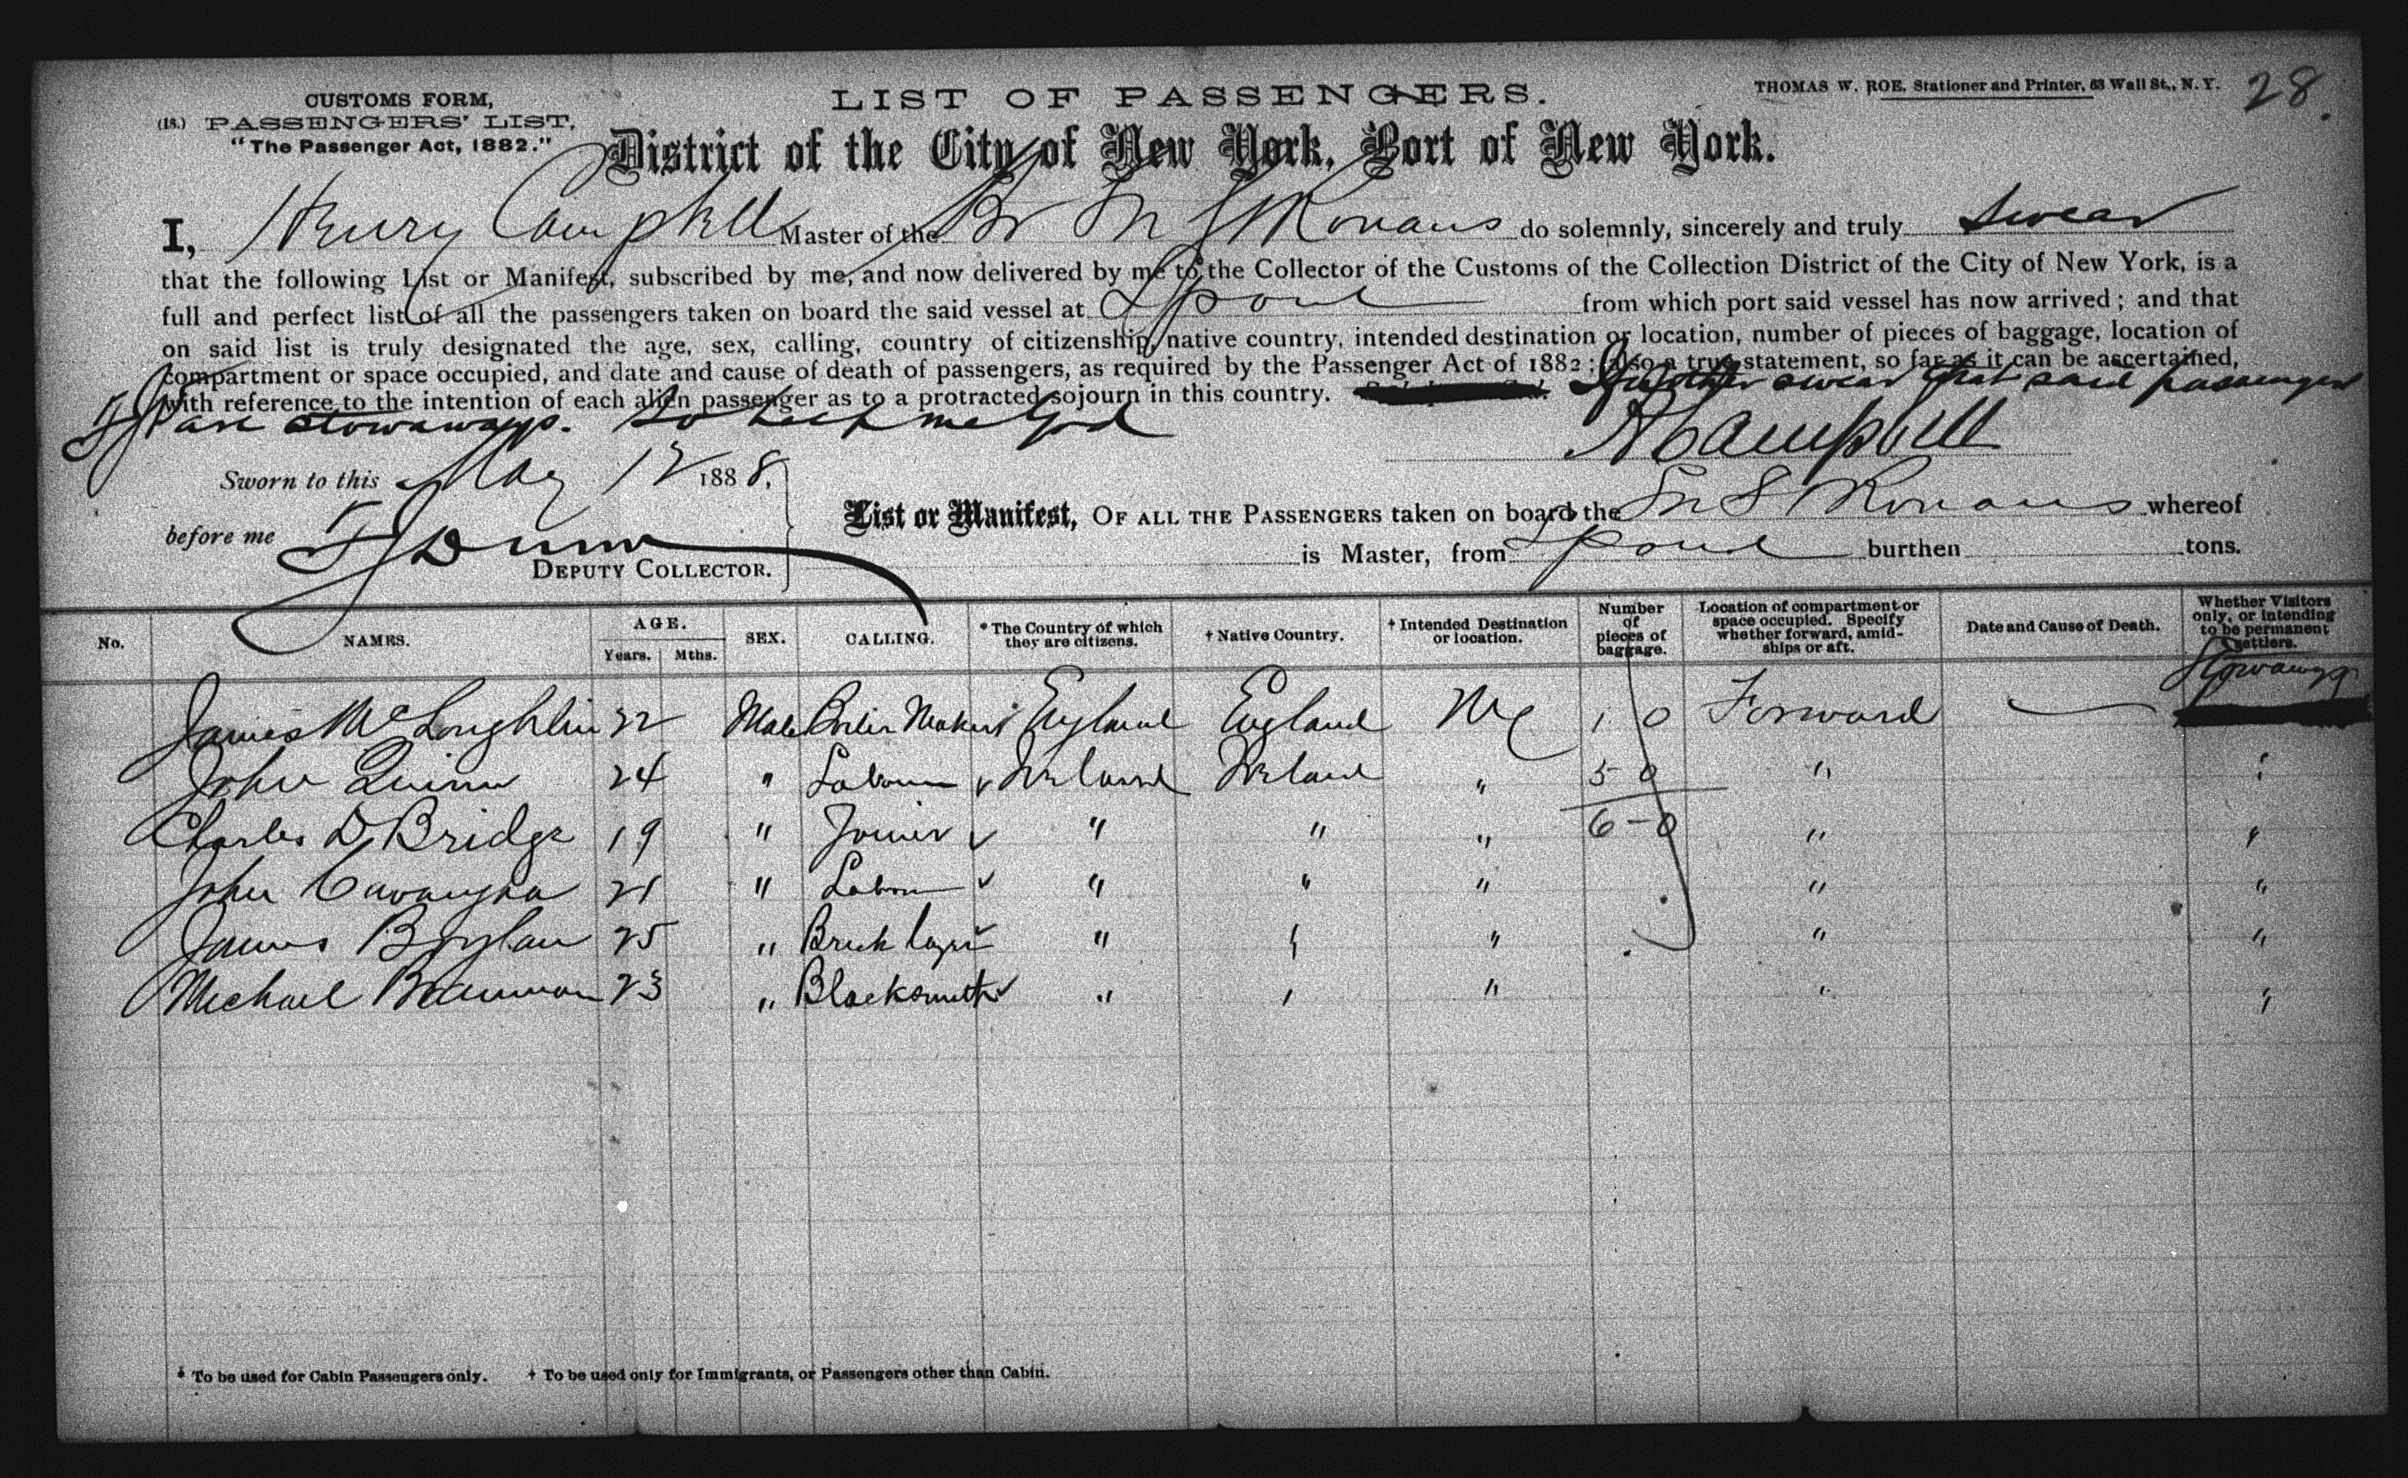 CUSTOMS FORM,
(18.) PASSENGERS' LIST,
"The Passenger Act, 1882."
LIST OF PASSENGERS.
THOMAS W. ROE, Stationer and Printer, 63 Wall St., N. Y.
28
District of the City of New York, Port of New York.
I, Henry Campbell Master of the Br do solemnly, sincerely and truly swear
that the following List or Manifest, subscribed by me, and now delivered by me to the Collector of the Customs of the Collection District of the City of New York, is a
full and perfect list of all the passengers taken on board the said vessel at Lpool from which port said vessel has now arrived; and that
on said list is truly designated the age, sex, calling, country of citizenship, native country, intended destination or location, number of pieces of baggage, location of
compartment or space occupied, and date and cause of death of passengers, as required by the Passenger Act of 1882; also a true statement, so far as it can be ascertained,
with reference to the intention of each alien passenger as to a protracted sojourn in this country. I further swear that said passengers
are stowaways. So help me God
H Campbell
Sworn to this May 12 1888,
before me Dunn
DEPUTY COLLECTOR.
List or Manifest, OF ALL THE PASSENGERS taken on board the whereof
is Master, from Lpool burthen tons.
No. NAMES. AGE. Years. Mths. SEX. CALLING. * The Country of which they are citizens. † Native Country. † Intended Destination or location. Number of pieces of baggage. Location of compartment or space occupied. Specify whether forward, amidships or aft. Date and Cause of Death. Whether Visitors only, or intending to be permanent settlers.
James McLoughlin 22 Male Boiler Maker England England NY 1 0 Forward — Stowaways
John Quinn 24 " Labourer Ireland Ireland " 5 0 " "
Charles D Bridge 19 " Joiner " " " 6 - 0 " "
John Cavangha 21 " Labour " " " " "
James Boylan 25 " Brick layer " " " " "
Michael Brannon 23 " Blacksmith " " " " "
* To be used for Cabin Passengers only. † To be used only for Immigrants, or Passengers other than Cabin.